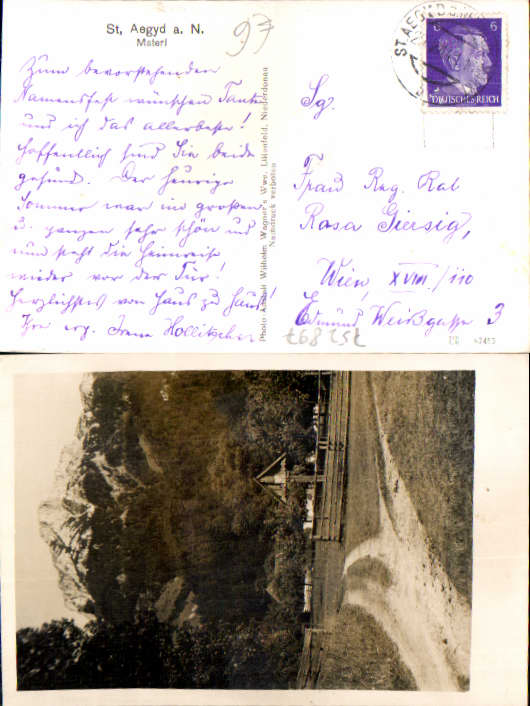 St. Aegyd a. N.
Materl
97
Zum bevorstehenden
Namensfest wünschen Tante
und ich das allerbeste!
Hoffentlich sind Sie beide
gesund. Der heurige
Sommer war im großen
u. ganzen sehr schön und
nun steht die Heimreise
wieder vor der Tür!
Herzlichstes von Haus zu Haus!
Ihre erg. Irene Hollitscher
Photo Anstalt Wilhelm Wagner's Wwe. Lilienfeld, Niederdonau
Nachdruck verboten
ST. AEGYD
6 6
DEUTSCHES REICH
Sg.
Frau Reg. Rat
Rosa Giersig,
Wien, XVIII./110
Edmund Weißgasse 3